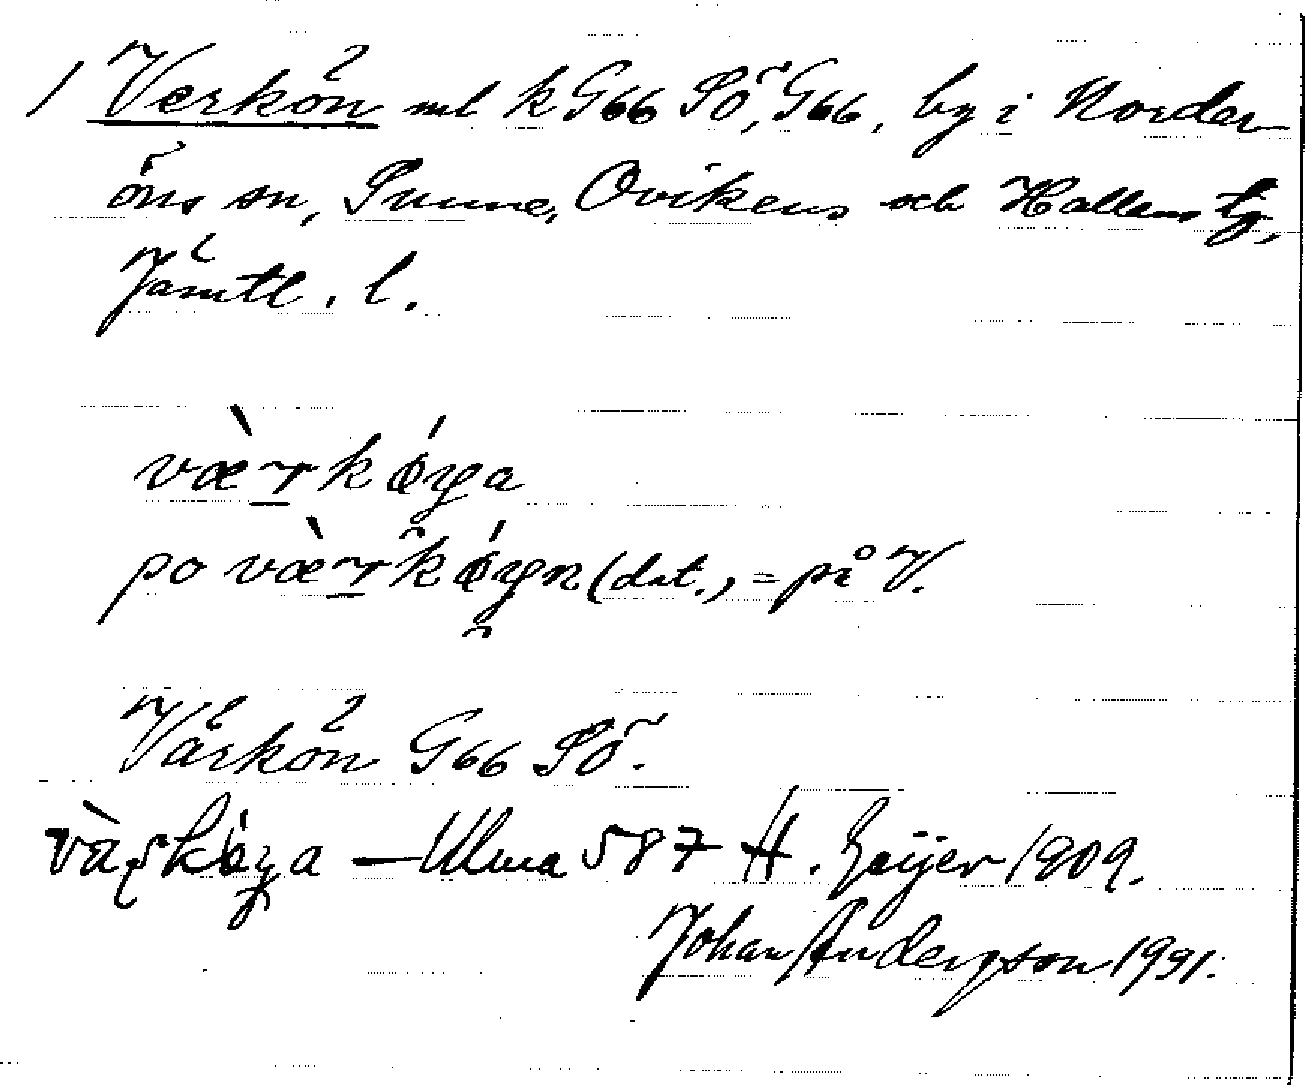 1 Verkön mb k G66 SÖ, G66, by i Norder-
öns sn, Sunne, Ovikens och Hallens tg,
Jämtl. l.
væ̀rkǿya
po væ̀rkǿyn (dat.) = på V.
Värkön G66 SÖ.
— Ulma 587 H. Geijer 1909.
Johan Anderson 1991.